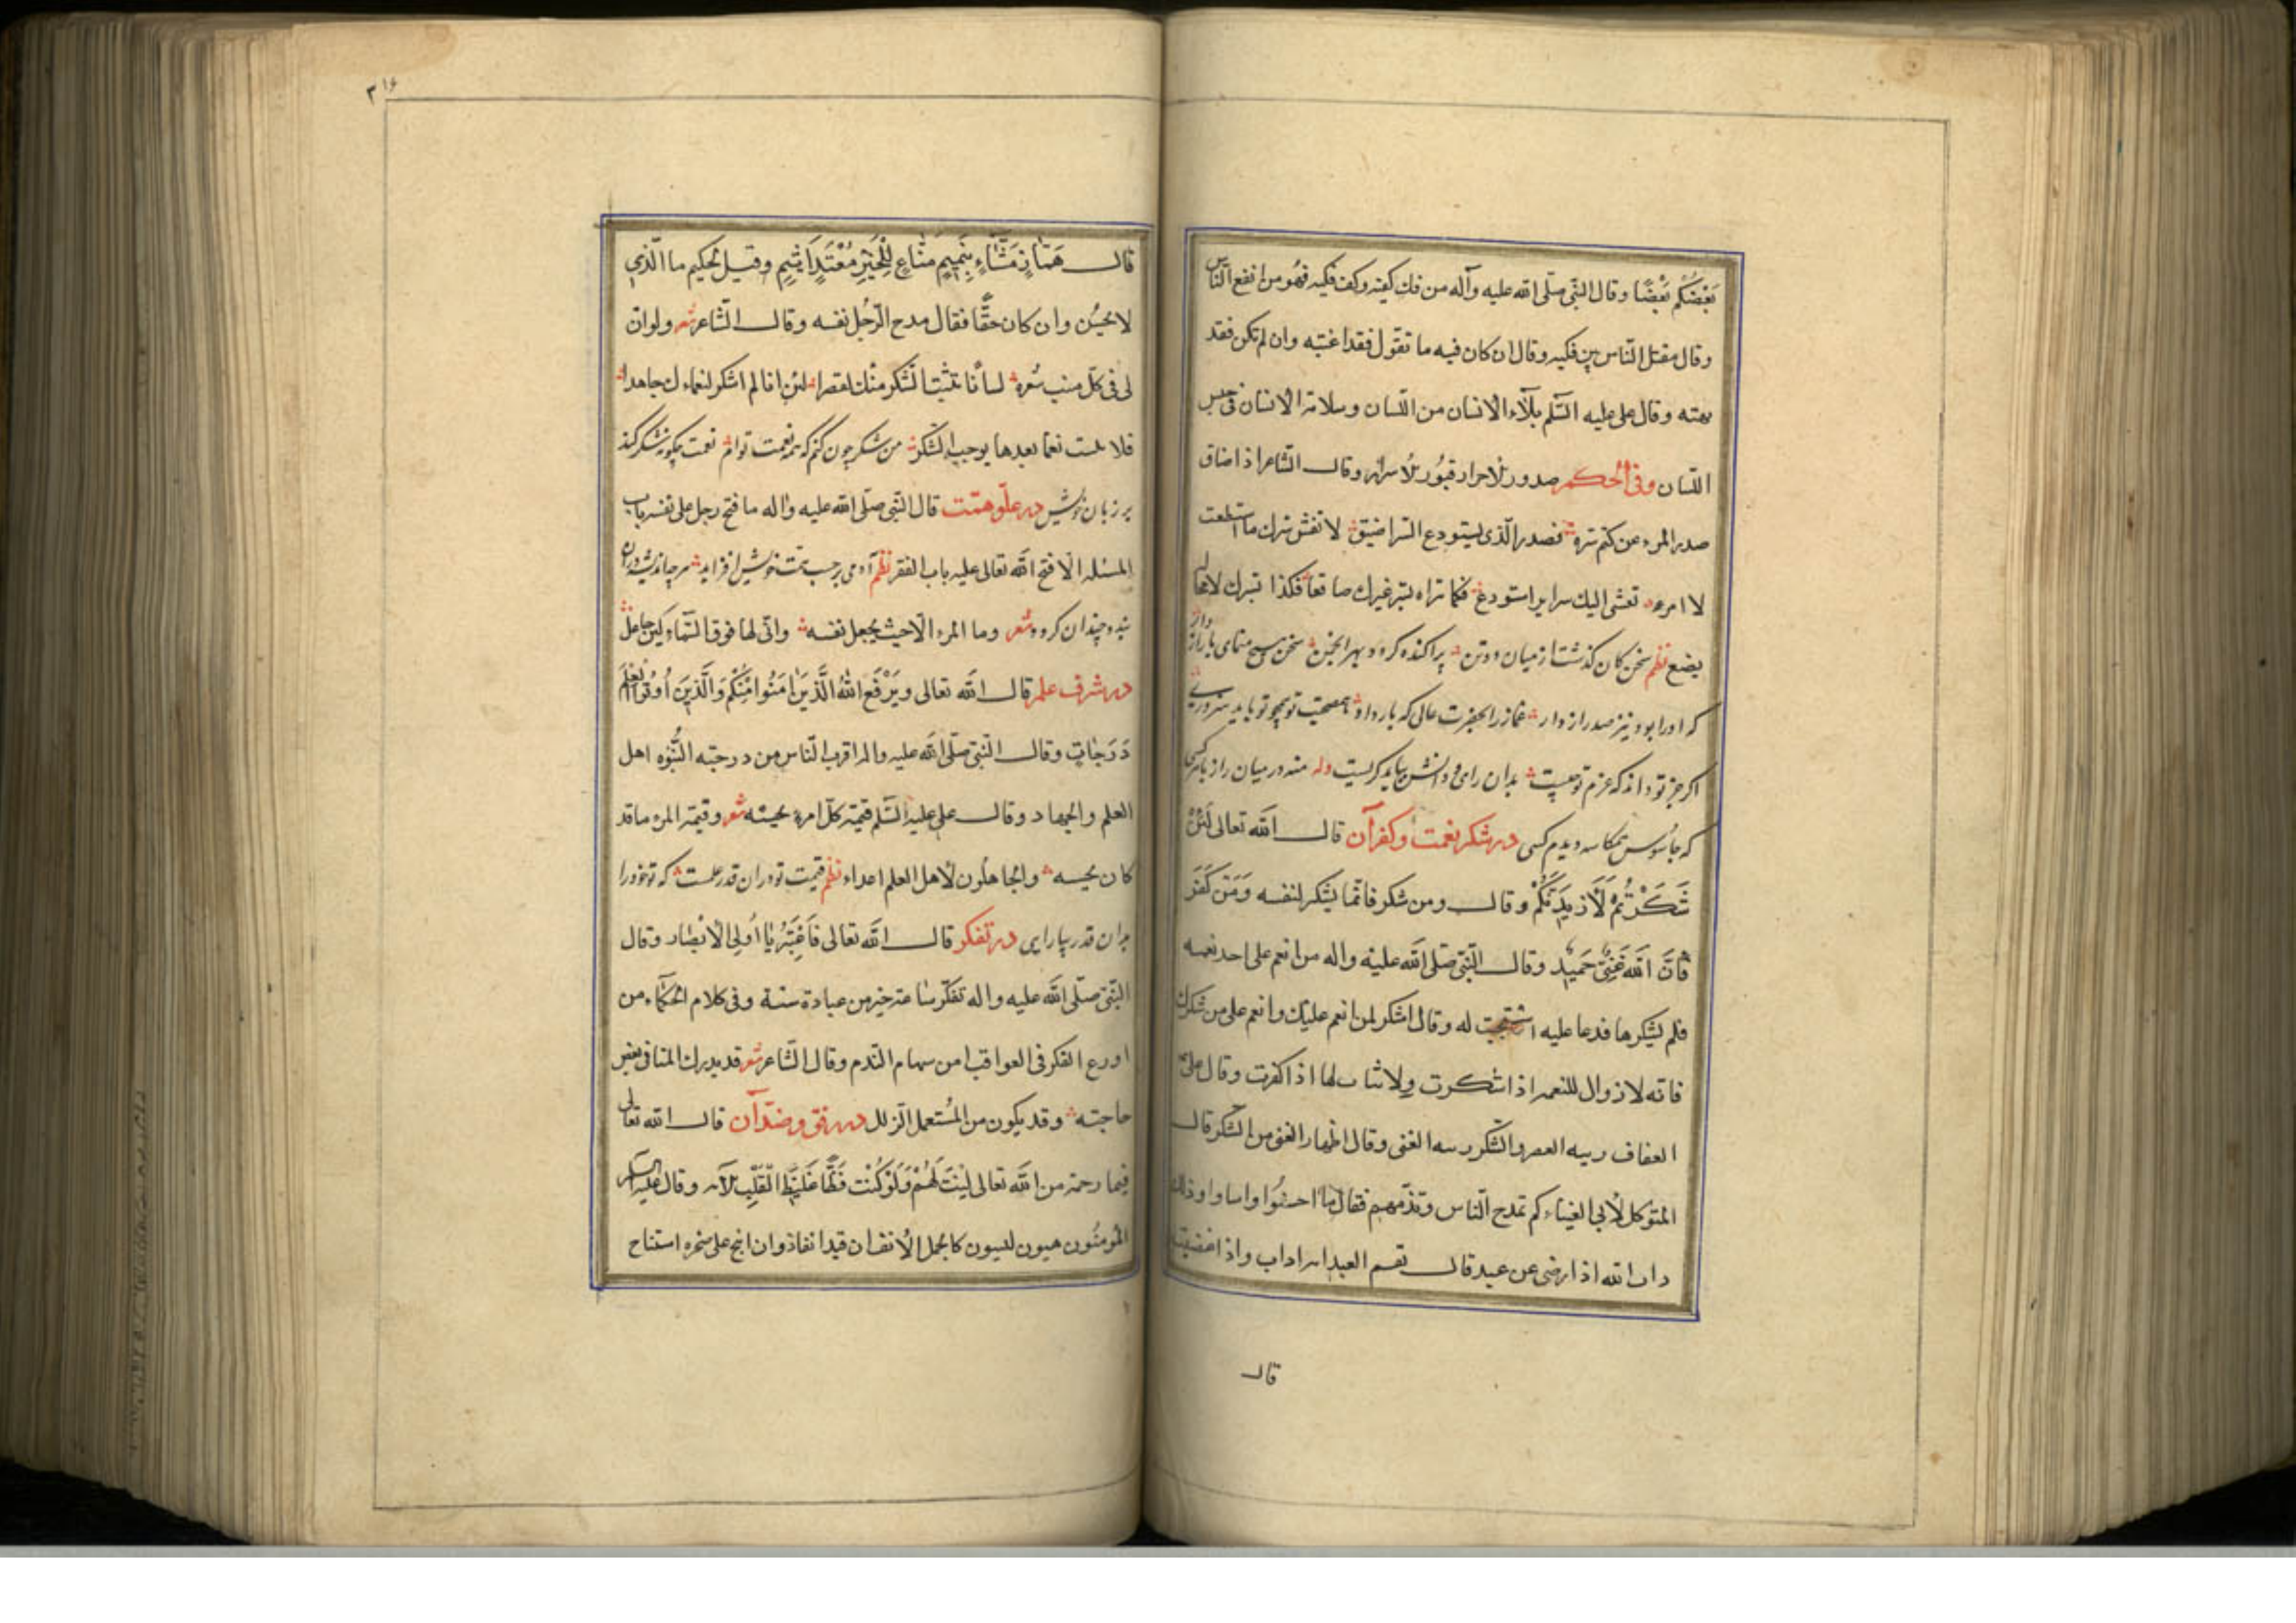 بَعْضُكُم بَعْضًا وقال النّبى صلّى الله عليه وآله من فك كفيه وكف فكيه فهو من انفع الناس
وقال مقتل الناس بين فكيه وقال ان كان فيه ما تقول فقد اغتبته وان لم تكن فقد
بهته وقال على عليه السّلم بلآء الانسان من اللّسان وسلامة الانسان فى حبس
اللسان وفى الحكم صدور الاحرار قبور الاسرار وقال الشاعر اذا ضاق
صدر المرء عن كتم سره فصدر الّذى يستودع السر اضيق لا تفش سرك ما استطعت
لا امرء تفشى اليك سراير استودع فكما تراه بسر غيرك صانعا فكذا بسرك لا محالة
يضع نظم سخن كان گذشت از ميان دو تن پراكنده كرد و بهر انجمن سخن هيچ منماى با رازدار
كه او را بود نيز صد رازدار غماز را بحضرت عالى كه بار داد همصحبت تو همچو تو بايد سرورى
اگر جز تو داند كه عزم تو چيست بدان راى و دانش ببايد گريست وله منه در ميان راز با هر كسى
كه جاسوس همكاسه ديدم كسى در شكر نعمت وكفر آن قال الله تعالى لَئِنْ
شَكَرْتُمْ لَأَزِيدَنَّكُمْ وقال ومن شكر فانّما يشكر لنفسه وَمَن كَفَرَ
فَانَّ اللهَ غَنِيٌّ حَمِيدٌ وقال النّبى صلى الله عليه واله من انعم على احد نعمه
فلم يشكرها فدعا عليه استجيب له وقال اشكر لمن انعم عليك وانعم على من شكرك
فانه لا زوال للنعمه اذا شكرت ولا ثبات لها اذا كفرت وقال على
العفاف زينه الفقر والشكر زينه الغنى وقال اظهار الغنى من الشكر قال
المتوكل لأبى العيناء كم تمدح الناس وتذمهم فقال ما احسنوا واساوا وذلك
داب الله اذا رضى عن عبد قال نعم العبد انه اواب واذا غضب
قال
٣١٦
قال هَمَّازٍ مَشَّاءٍ بِنَمِيمٍ مَنَّاعٍ لِلْخَيْرِ مُعْتَدٍ أَثِيمٍ وقيل لحكيم ما الّذى
لا يحسُن وان كان حقًّا فقال مدح الرّجُل نفسه وقال الشاعر شعر ولو ان
لى فى كلّ منبت شعره لسانًا يبث الشكر منك لقصرا لئن انا لم اشكر لنعماءك جاهدا
فلا نلت نعما بعدها يوجب الشكر من شكر چون كنم كه همه نعمت توام نعمت چگونه شكر كند
بر زبان خويش در علوّ همّت قال النّبى صلّى الله عليه واله ما فتح رجل على نفسه باب
المسئله الا فتح الله تعالى عليه باب الفقر نظم آدمى بر حسب همت خويش افزايد هر چه انديشه در آن
بندد چندان گردد شعر وما المرء الّا حيث يجعل نفسه وانى لها فوق السّماء لمن جاعل
در شرف علم قال الله تعالى ويَرْفَعِ اللهُ الَّذِينَ اٰمَنُوا مِنْكُمْ وَالَّذِينَ أُوتُوا العلم
دَرَجَاتٍ وقال النّبى صلّى الله عليه واله اقرب النّاس من درجته النُّبُوّه اهل
العلم والجهاد وقال على عليه السّلم قيمة كلّ امرء يحسنه شعر وقيمة المرء ما قد
كان يحسنه والجاهلون لأهل العلم اعداء نظم قيمت تو در آن قدر علمست كه تو خود را
بدان قدر بيارايى در تفكر قال الله تعالى فَاعْتَبِرُوا يَا أُولِى الأَبْصَارِ وقال
النّبى صلّى الله عليه واله تفكّر ساعة خير من عبادة سنة وفى كلام الحكماء من
اورع الفكر فى العواقب امن سهام النّدم وقال الشاعر شعر قد يدرك المتانى بعض
حاجته وقد يكون من المُستعمل الزلل در رفق وضدّ آن قال الله تعالى
فبما رحمة من الله تعالى لِنْتَ لَهُمْ وَلَوْ كُنْتَ فَظًّا غَلِيظَ الْقَلْبِ الآيه وقال عليه السلم
المُؤمنُون هينون لينون كالجمل الأنف ان قيد انقاد وان انيخ على صخره استناخ